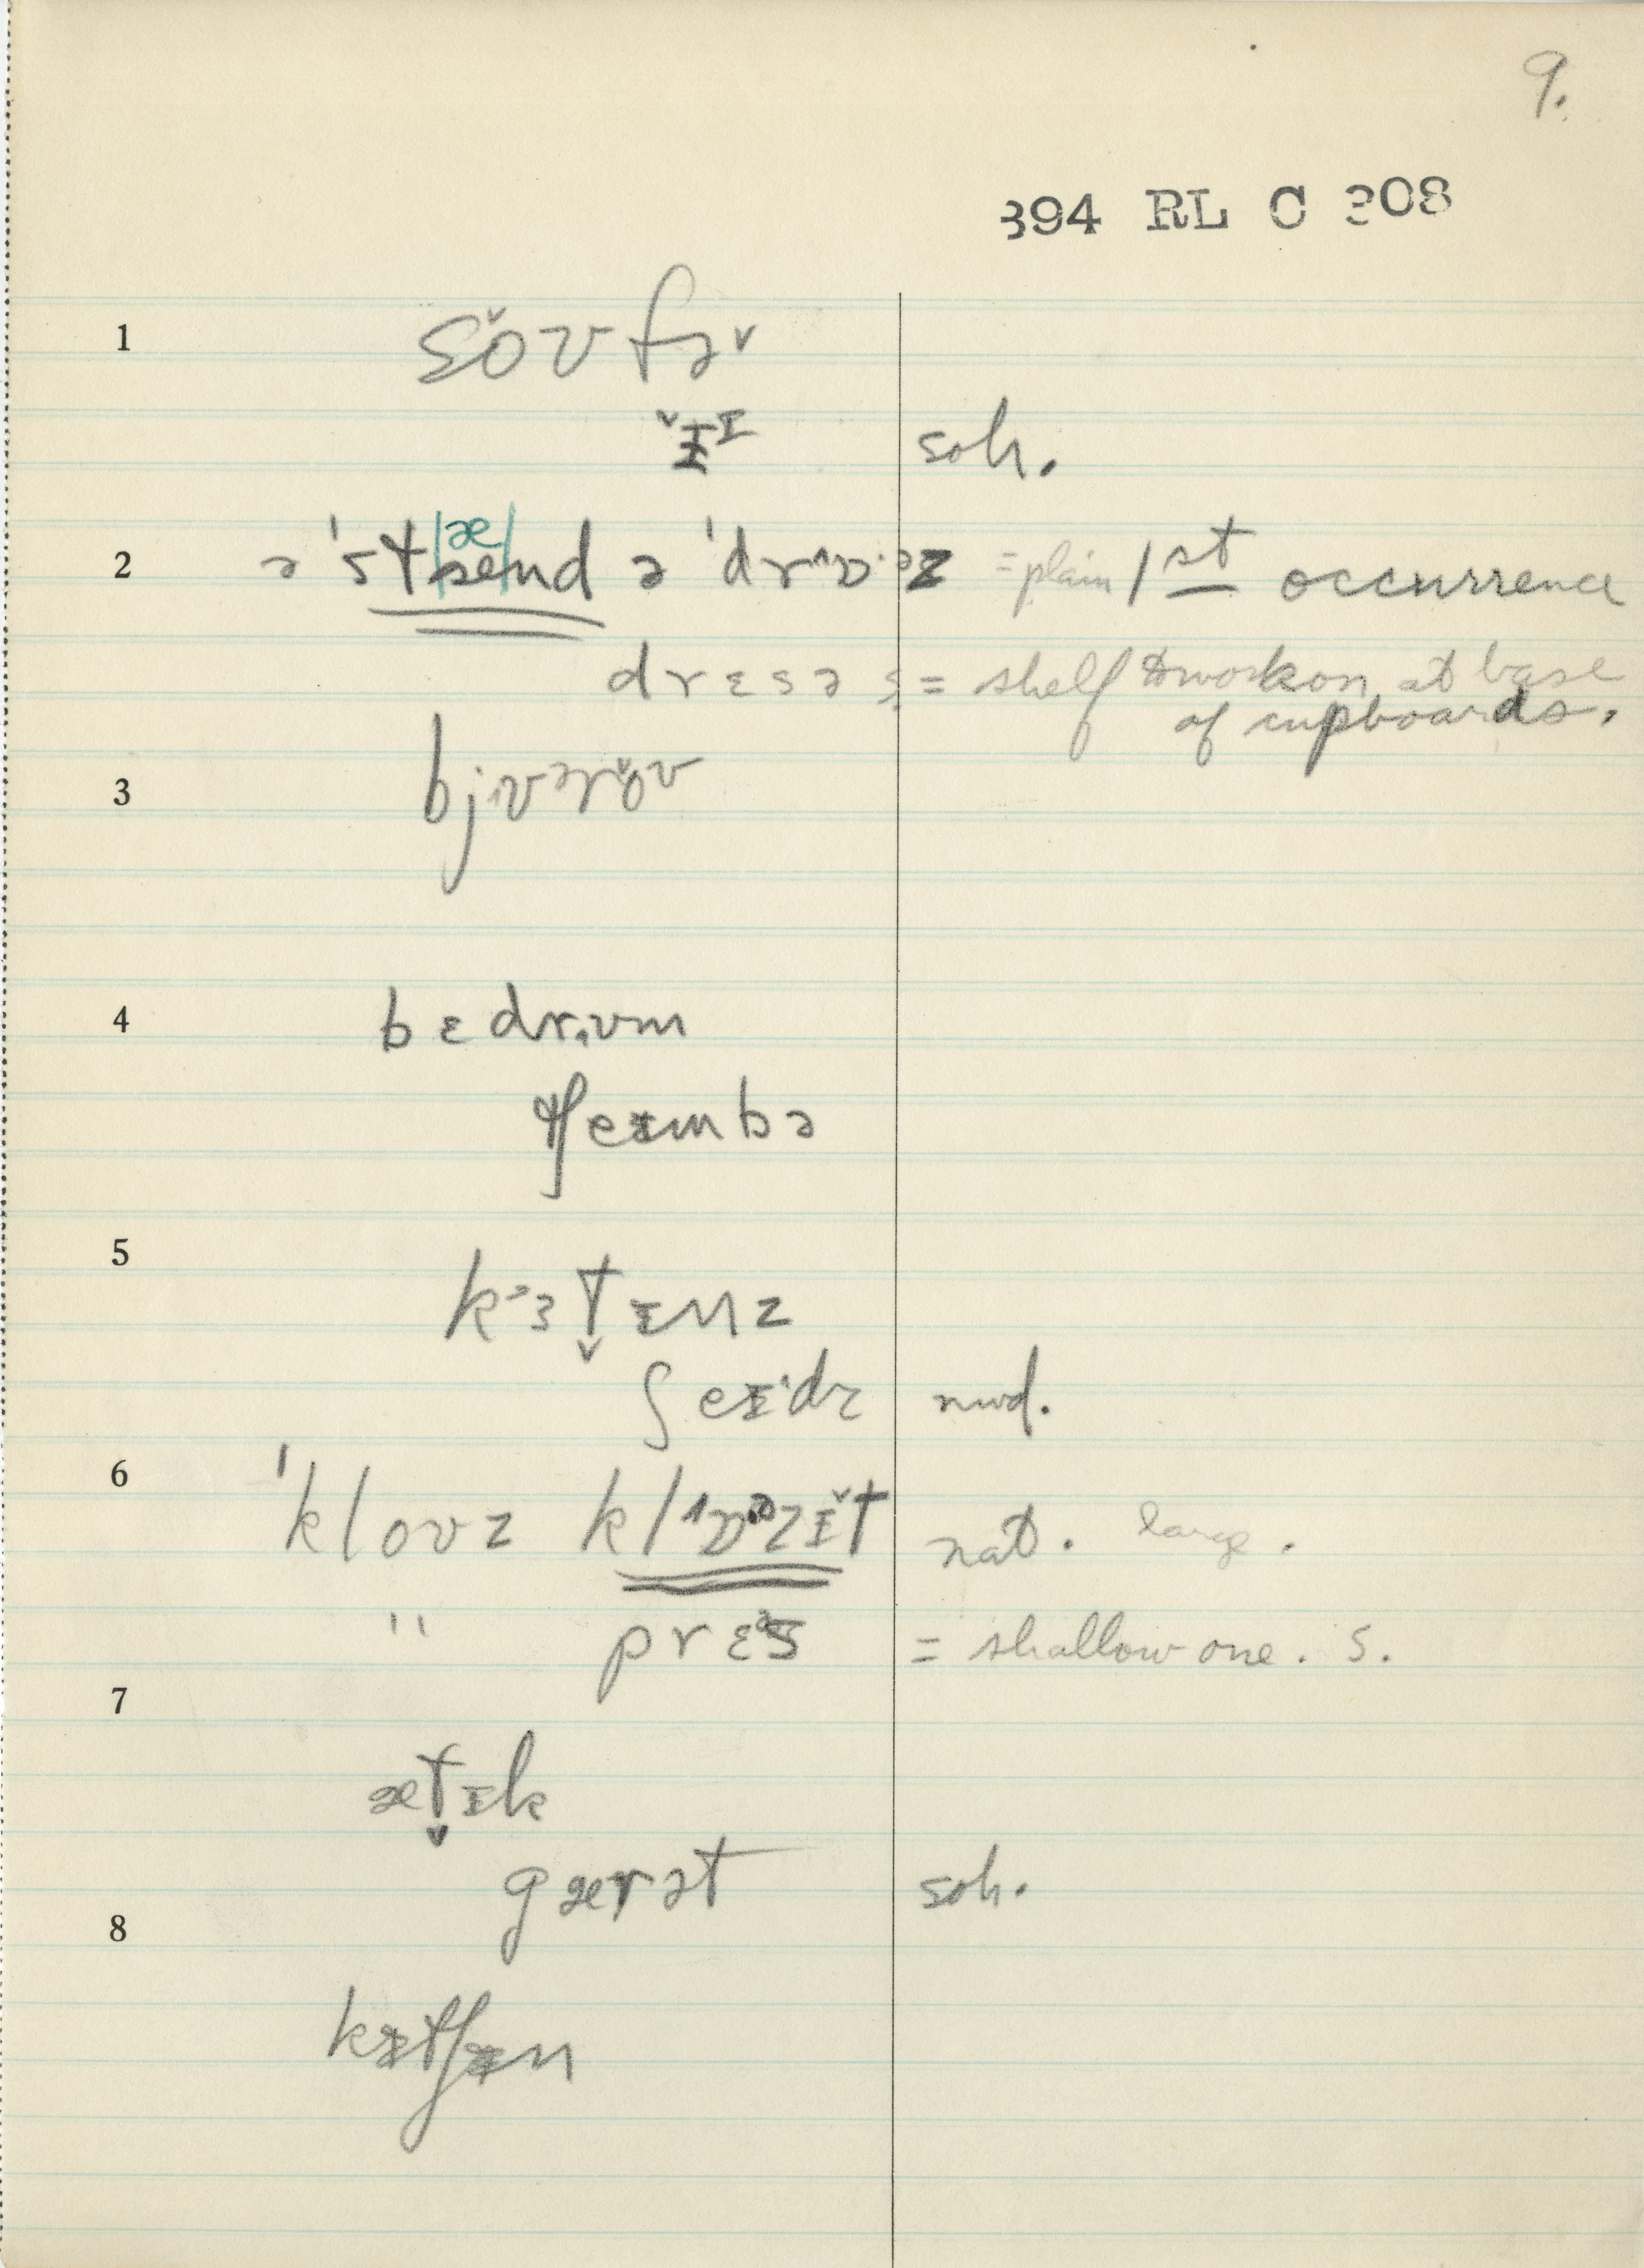 9.
394 RL C 308
1 soʊfə
ɨɪ soh.
2 ə ˈstænd ə ˈdrɔəz = plain 1st occurrence
drɛsəs = shelf to work on at base
of cupboards.
3 bjʊəroʊ
4 bɛdrʊm
tʃeɨmbə
5 kɜtɪnz
ʃeɨˑdz nwd.
6 ˈkloʊz klɒzɪt nat. large.
" prɛs = shallow one. s.
7
ætɪk
gærət soh.
8
kɪtʃɪn